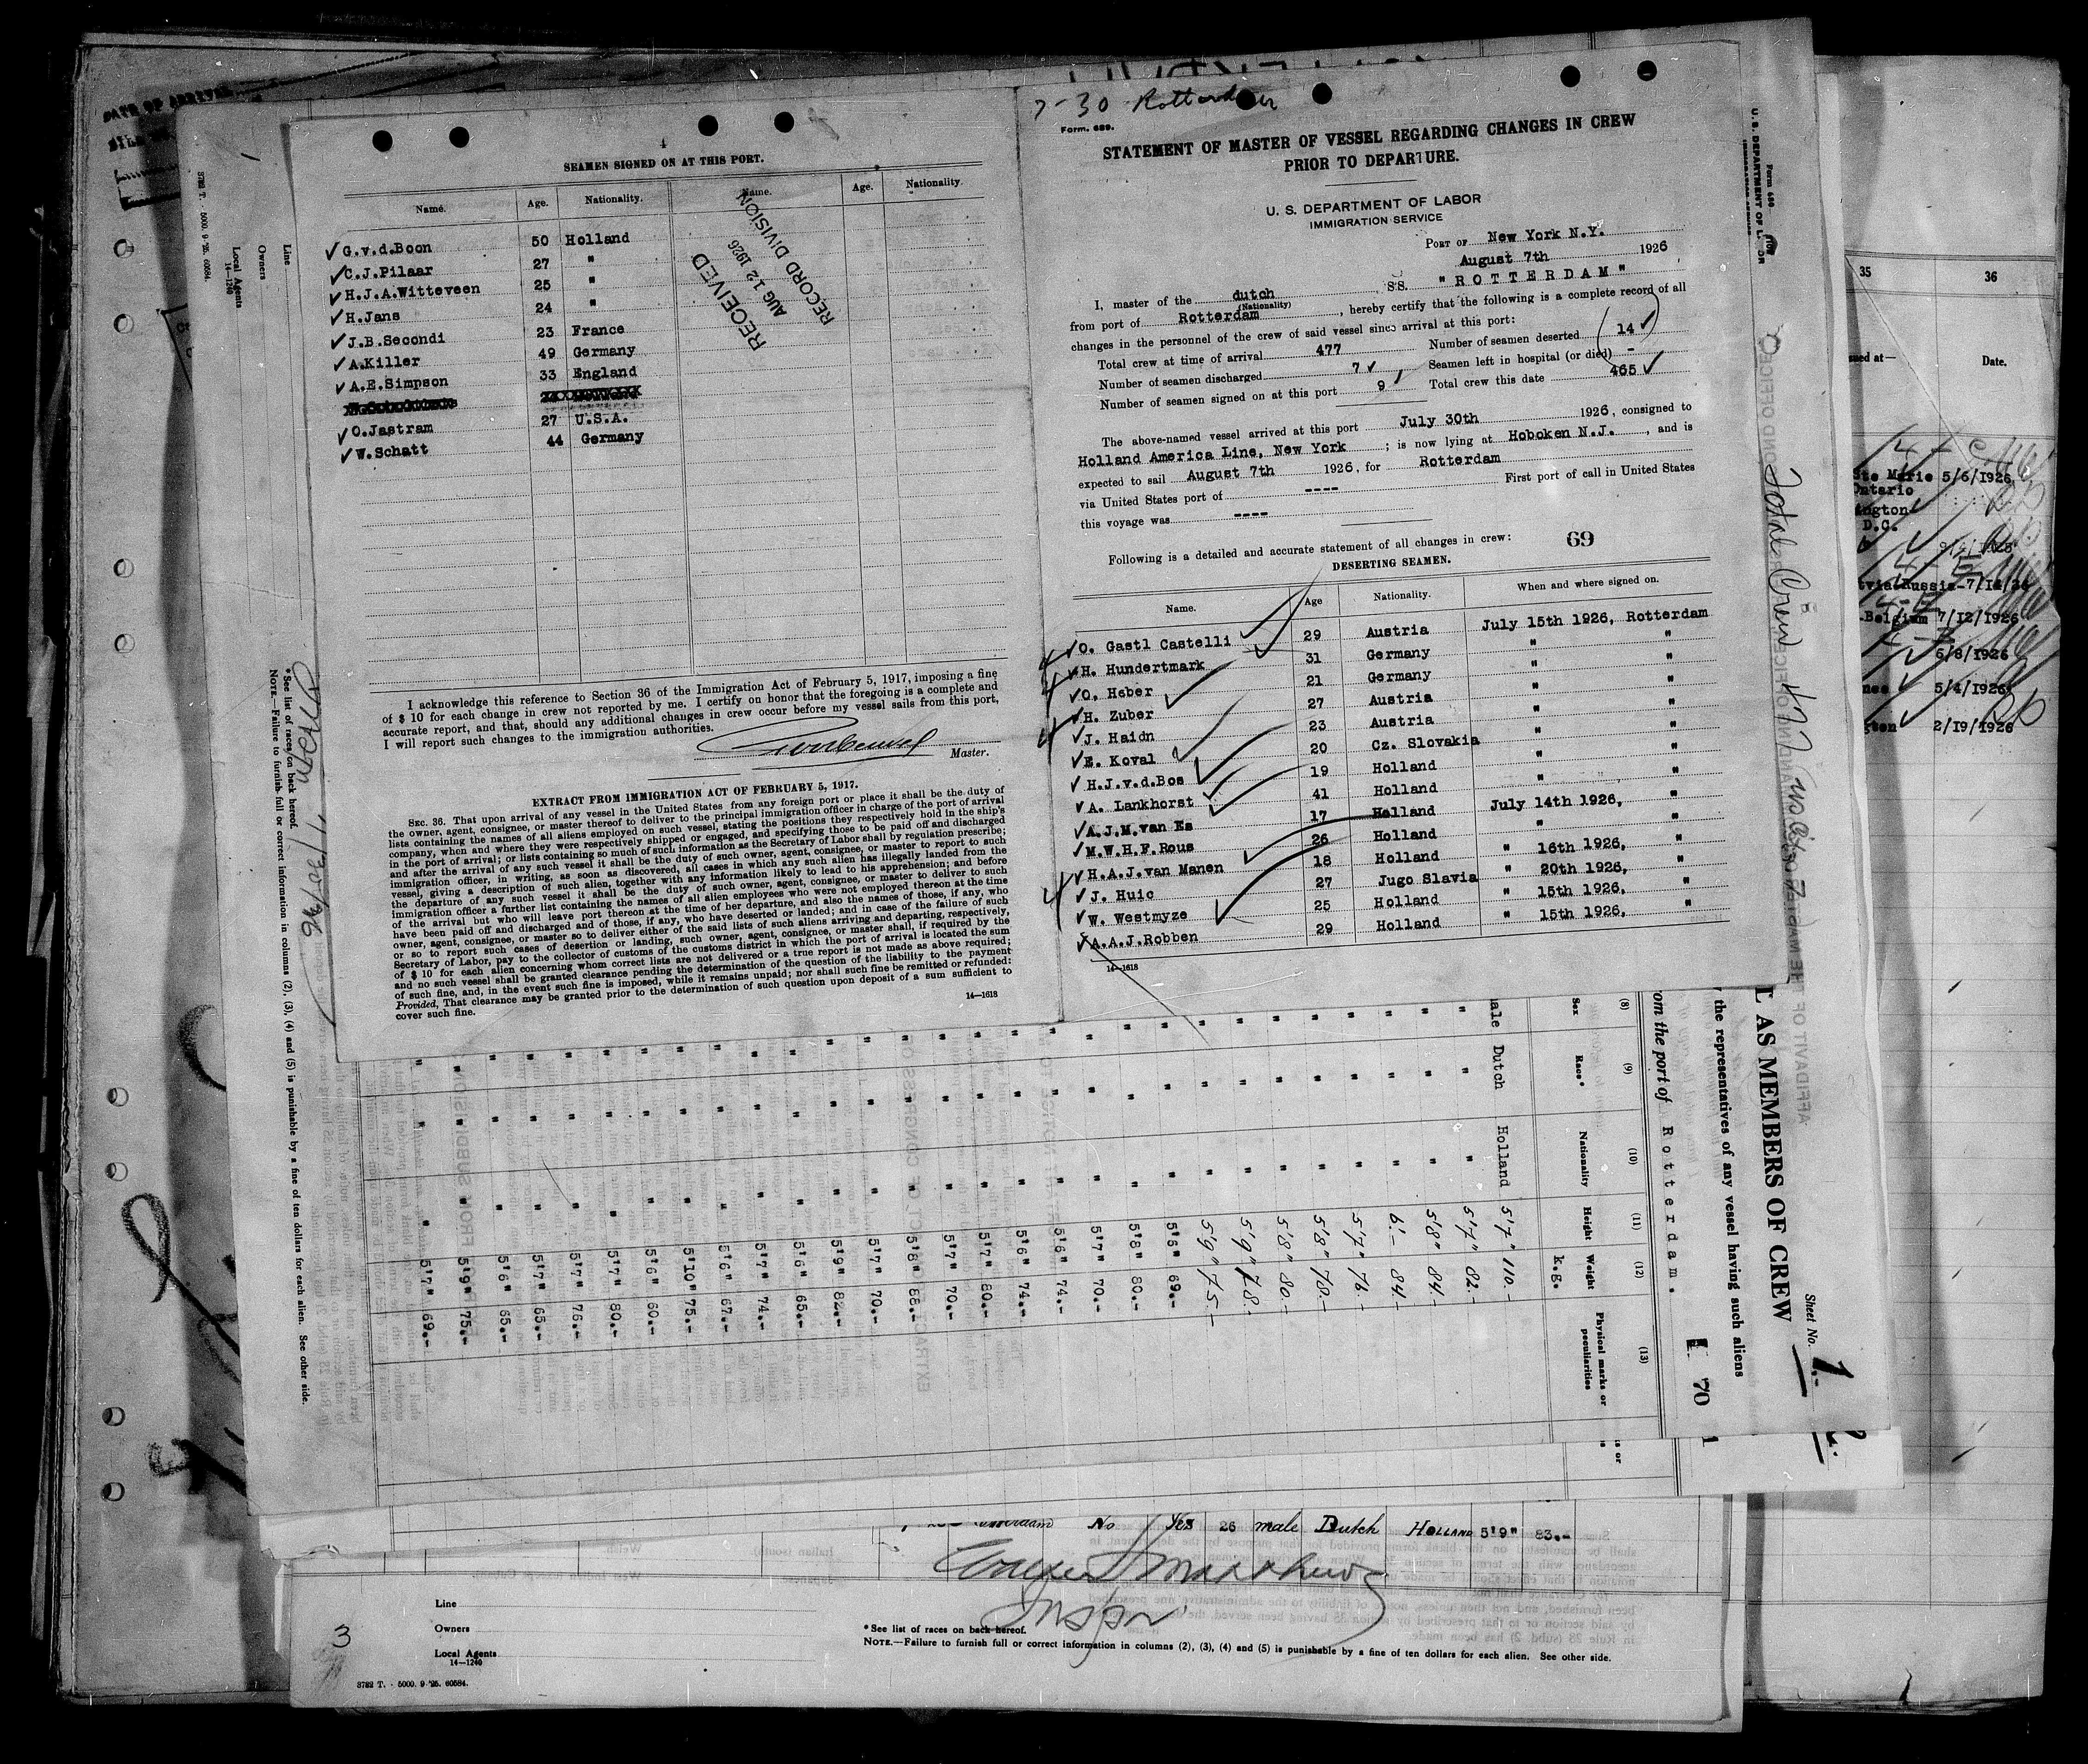 4
SEAMEN SIGNED ON AT THIS PORT.
Name. Age. Nationality. Name. Age. Nationality.
✓ G.v.d.Boon 50 Holland
✓ C.J.Pilaar 27 "
✓ H.J.A.Witteveen 25 "
✓ H.Jans 24 "
✓ J.B.Secondi 23 France
✓ A.Killer 49 Germany
✓ A.E.Simpson 33 England
✓ O.Jastram 27 U.S.A.
✓ W.Schatt 44 Germany
RECEIVED
AUG 12 1926
RECORD DIVISION
I acknowledge this reference to Section 36 of the Immigration Act of February 5, 1917, imposing a fine
of $ 10 for each change in crew not reported by me. I certify on honor that the foregoing is a complete and
accurate report, and that, should any additional changes in crew occur before my vessel sails from this port,
I will report such changes to the immigration authorities.
Master.
EXTRACT FROM IMMIGRATION ACT OF FEBRUARY 5, 1917.
SEC. 36. That upon arrival of any vessel in the United States from any foreign port or place it shall be the duty of
the owner, agent, consignee, or master thereof to deliver to the principal immigration officer in charge of the port of arrival
lists containing the names of all aliens employed on such vessel, stating the positions they respectively hold in the ship's
company, when and where they were respectively shipped or engaged, and specifying those to be paid off and discharged
in the port of arrival; or lists containing so much of such information as the Secretary of Labor shall by regulation prescribe;
and after the arrival of any such vessel it shall be the duty of such owner, agent, consignee, or master to report to such
immigration officer, in writing, as soon as discovered, all cases in which any such alien has illegally landed from the
vessel, giving a description of such alien, together with any information likely to lead to his apprehension; and before
the departure of any such vessel it shall be the duty of such owner, agent, consignee, or master to deliver to such
immigration officer a further list containing the names of all alien employees who were not employed thereon at the time
of the arrival but who will leave port thereon at the time of her departure, and also the names of those, if any, who
have been paid off and discharged and of those, if any, who have deserted or landed; and in case of the failure of such
owner, agent, consignee, or master so to deliver either of the said lists of such aliens arriving and departing, respectively,
or so to report such cases of desertion or landing, such owner, agent, consignee, or master shall, if required by the
Secretary of Labor, pay to the collector of customs of the customs district in which the port of arrival is located the sum
of $ 10 for each alien concerning whom correct lists are not delivered or a true report is not made as above required;
and no such vessel shall be granted clearance pending the determination of the question of the liability to the payment
of such fine, and, in the event such fine is imposed, while it remains unpaid; nor shall such fine be remitted or refunded:
Provided, That clearance may be granted prior to the determination of such question upon deposit of a sum sufficient to
cover such fine.
14—1618
7-30 Rotterdam
Form. 689.
STATEMENT OF MASTER OF VESSEL REGARDING CHANGES IN CREW
PRIOR TO DEPARTURE.
U. S. DEPARTMENT OF LABOR
IMMIGRATION SERVICE
PORT OF New York N.Y.
August 7th 1926
I, master of the dutch SS. "ROTTERDAM"
(Nationality)
from port of Rotterdam, hereby certify that the following is a complete record of all
changes in the personnel of the crew of said vessel since arrival at this port:
Total crew at time of arrival 477 Number of seamen deserted 14 ✓
Number of seamen discharged 7 ✓ Seamen left in hospital (or died) -
Number of seamen signed on at this port 9 Total crew this date 465 ✓
The above-named vessel arrived at this port July 30th 1926, consigned to
Holland America Line, New York; is now lying at Hoboken N.J., and is
expected to sail August 7th 1926, for Rotterdam
via United States port of ---- First port of call in United States
this voyage was ----
Following is a detailed and accurate statement of all changes in crew: 69
DESERTING SEAMEN.
Name. Age Nationality. When and where signed on.
✓ O. Gastl Castelli 29 Austria July 15th 1926, Rotterdam
✓ H. Hundertmark 31 Germany " "
✓ O. Heber 21 Germany " "
✓ H. Zuber 27 Austria " "
✓ J. Haidn 23 Austria " "
✓ E. Koval 20 Cz. Slovakia " "
✓ H.J.v.d.Bos 19 Holland " "
✓ A. Lankhorst 41 Holland " "
✓ A.J.M.van Es 17 Holland July 14th 1926, "
✓ M.W.H.F.Rous 26 Holland " "
✓ H.A.J.van Manen 18 Holland " 16th 1926, "
✓ J. Huic 27 Jugo Slavia " 20th 1926, "
✓ W. Westmyze 25 Holland " 15th 1926, "
A.A.J.Robben 29 Holland " 15th 1926, "
14—1618
35 36
Date.
Ste Marie 5/6/1926
Ontario
D.C.
Belgium 7/12/1926
5/8/1926
5/4/1926
2/19/1926
Form 689
U. S. DEPARTMENT OF LABOR
Total Crew 477
AS MEMBERS OF CREW
Sheet No. 1.-
the representatives of any vessel having such aliens
from the port of Rotterdam.
70
(8) (9) (10) (11) (12) (13)
Sex Race* Nationality Height Weight Physical marks or peculiarities
k.g.
Dutch Holland 5'7" 110.-
" " 5'7" 82.-
" " 5'8" 84.-
" " 6'.- 84.-
" " 5'7" 76.-
" " 5'8" 78.-
" " 5'8" 80.-
" " 5'9" 78.-
" " 5'9" 75.-
" " 5'6" 69.-
" " 5'8" 80.-
" " 5'7" 70.-
" " 5'6" 74.-
" " 5'6" 74.-
" " 5'7" 80.-
" " 5'7" 70.-
" " 5'8" 88.-
" " 5'7" 70.-
" " 5'9" 82.-
" " 5'6" 65.-
" " 5'7" 74.-
" " 5'6" 67.-
" " 5'10" 75.-
" " 5'6" 60.-
" " 5'7" 80.-
" " 5'7" 76.-
" " 5'7" 65.-
" " 5'6" 65.-
" " 5'9" 75.-
" " 5'7" 69.-
Line
Owners
Local Agents
14—1240
3782 T. - 5000. 9 '25. 60584.
*See list of races on back hereof.
NOTE.—Failure to furnish full or correct information in columns (2), (3), (4) and (5) is punishable by a fine of ten dollars for each alien. See other side.
7/30/26
No Yes 26 male Dutch HOLLAND 5'9" 83.-
Inspr.
3
Line
Owners
Local Agents
14—1240
*See list of races on back hereof.
NOTE.—Failure to furnish full or correct information in columns (2), (3), (4) and (5) is punishable by a fine of ten dollars for each alien. See other side.
3782 T. - 5000. 9 '25. 60584.